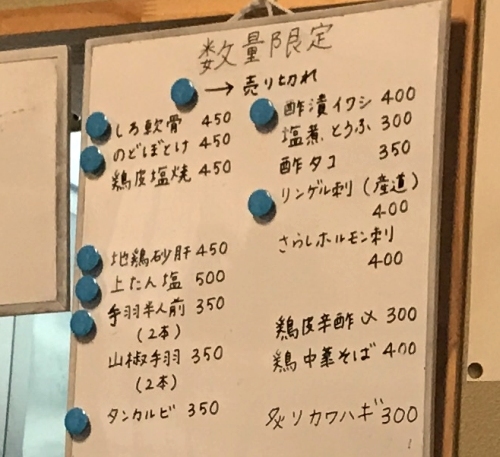 数量限定
→ 売り切れ
しろ軟骨 450
のどぼとけ 450
鶏皮塩焼 450
地鶏砂肝 450
上たん塩 500
手羽半人前 350
(2本)
山椒手羽 350
(2本)
タンカルビ 350
酢漬イワシ 400
塩煮とうふ 300
酢タコ 350
リンゲル刺(産道)
400
さらしホルモン刺
400
鶏皮辛酢〆 300
鶏中華そば 400
炙りカワハギ 300